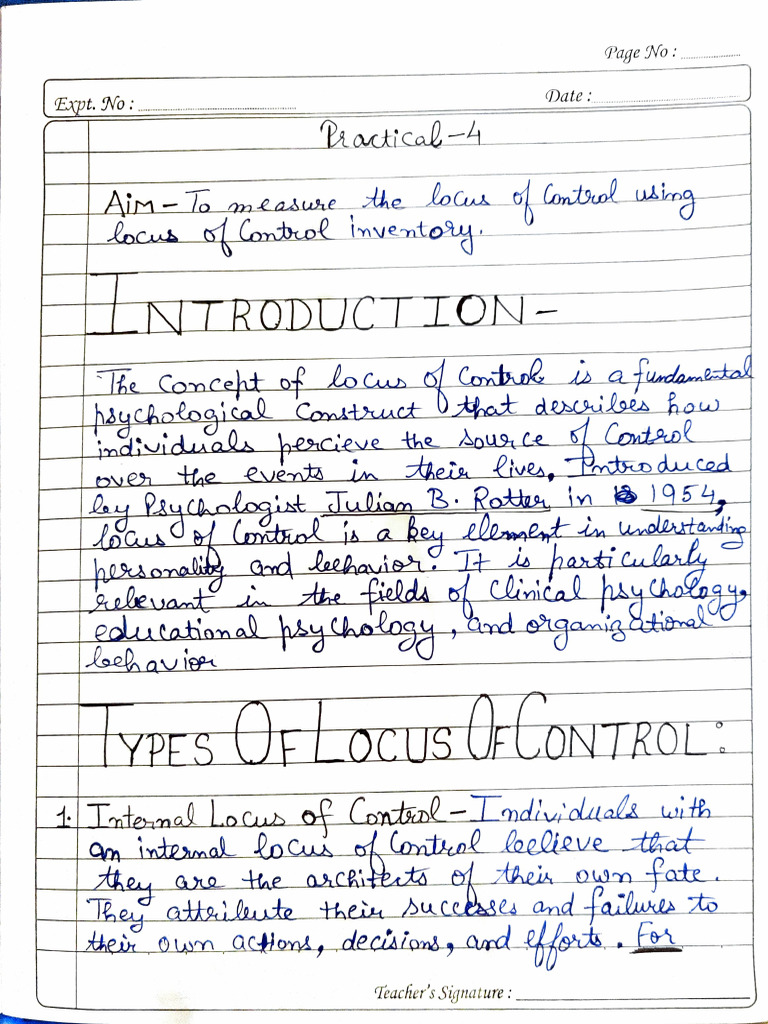 Page No :
Expt. No :
Date :
Practical-4
Aim - To measure the locus of Control using
locus of Control inventory.
INTRODUCTION-
The Concept of locus of Control is a fundamental
psychological Construct that describes how
individuals percieve the source of Control
over the events in their lives. Introduced
by Psychologist Julian B. Rotter in 1954,
locus of Control is a key element in understanding
personality and behavior. It is particularly
relevant in the fields of Clinical psychology,
educational psychology, and organizational
behavior
TYPES OF LOCUS OF CONTROL:
1. Internal Locus of Control - Individuals with
an internal locus of Control believe that
they are the architects of their own fate.
They attribute their successes and failures to
their own actions, decisions, and efforts. For
Teacher's Signature :